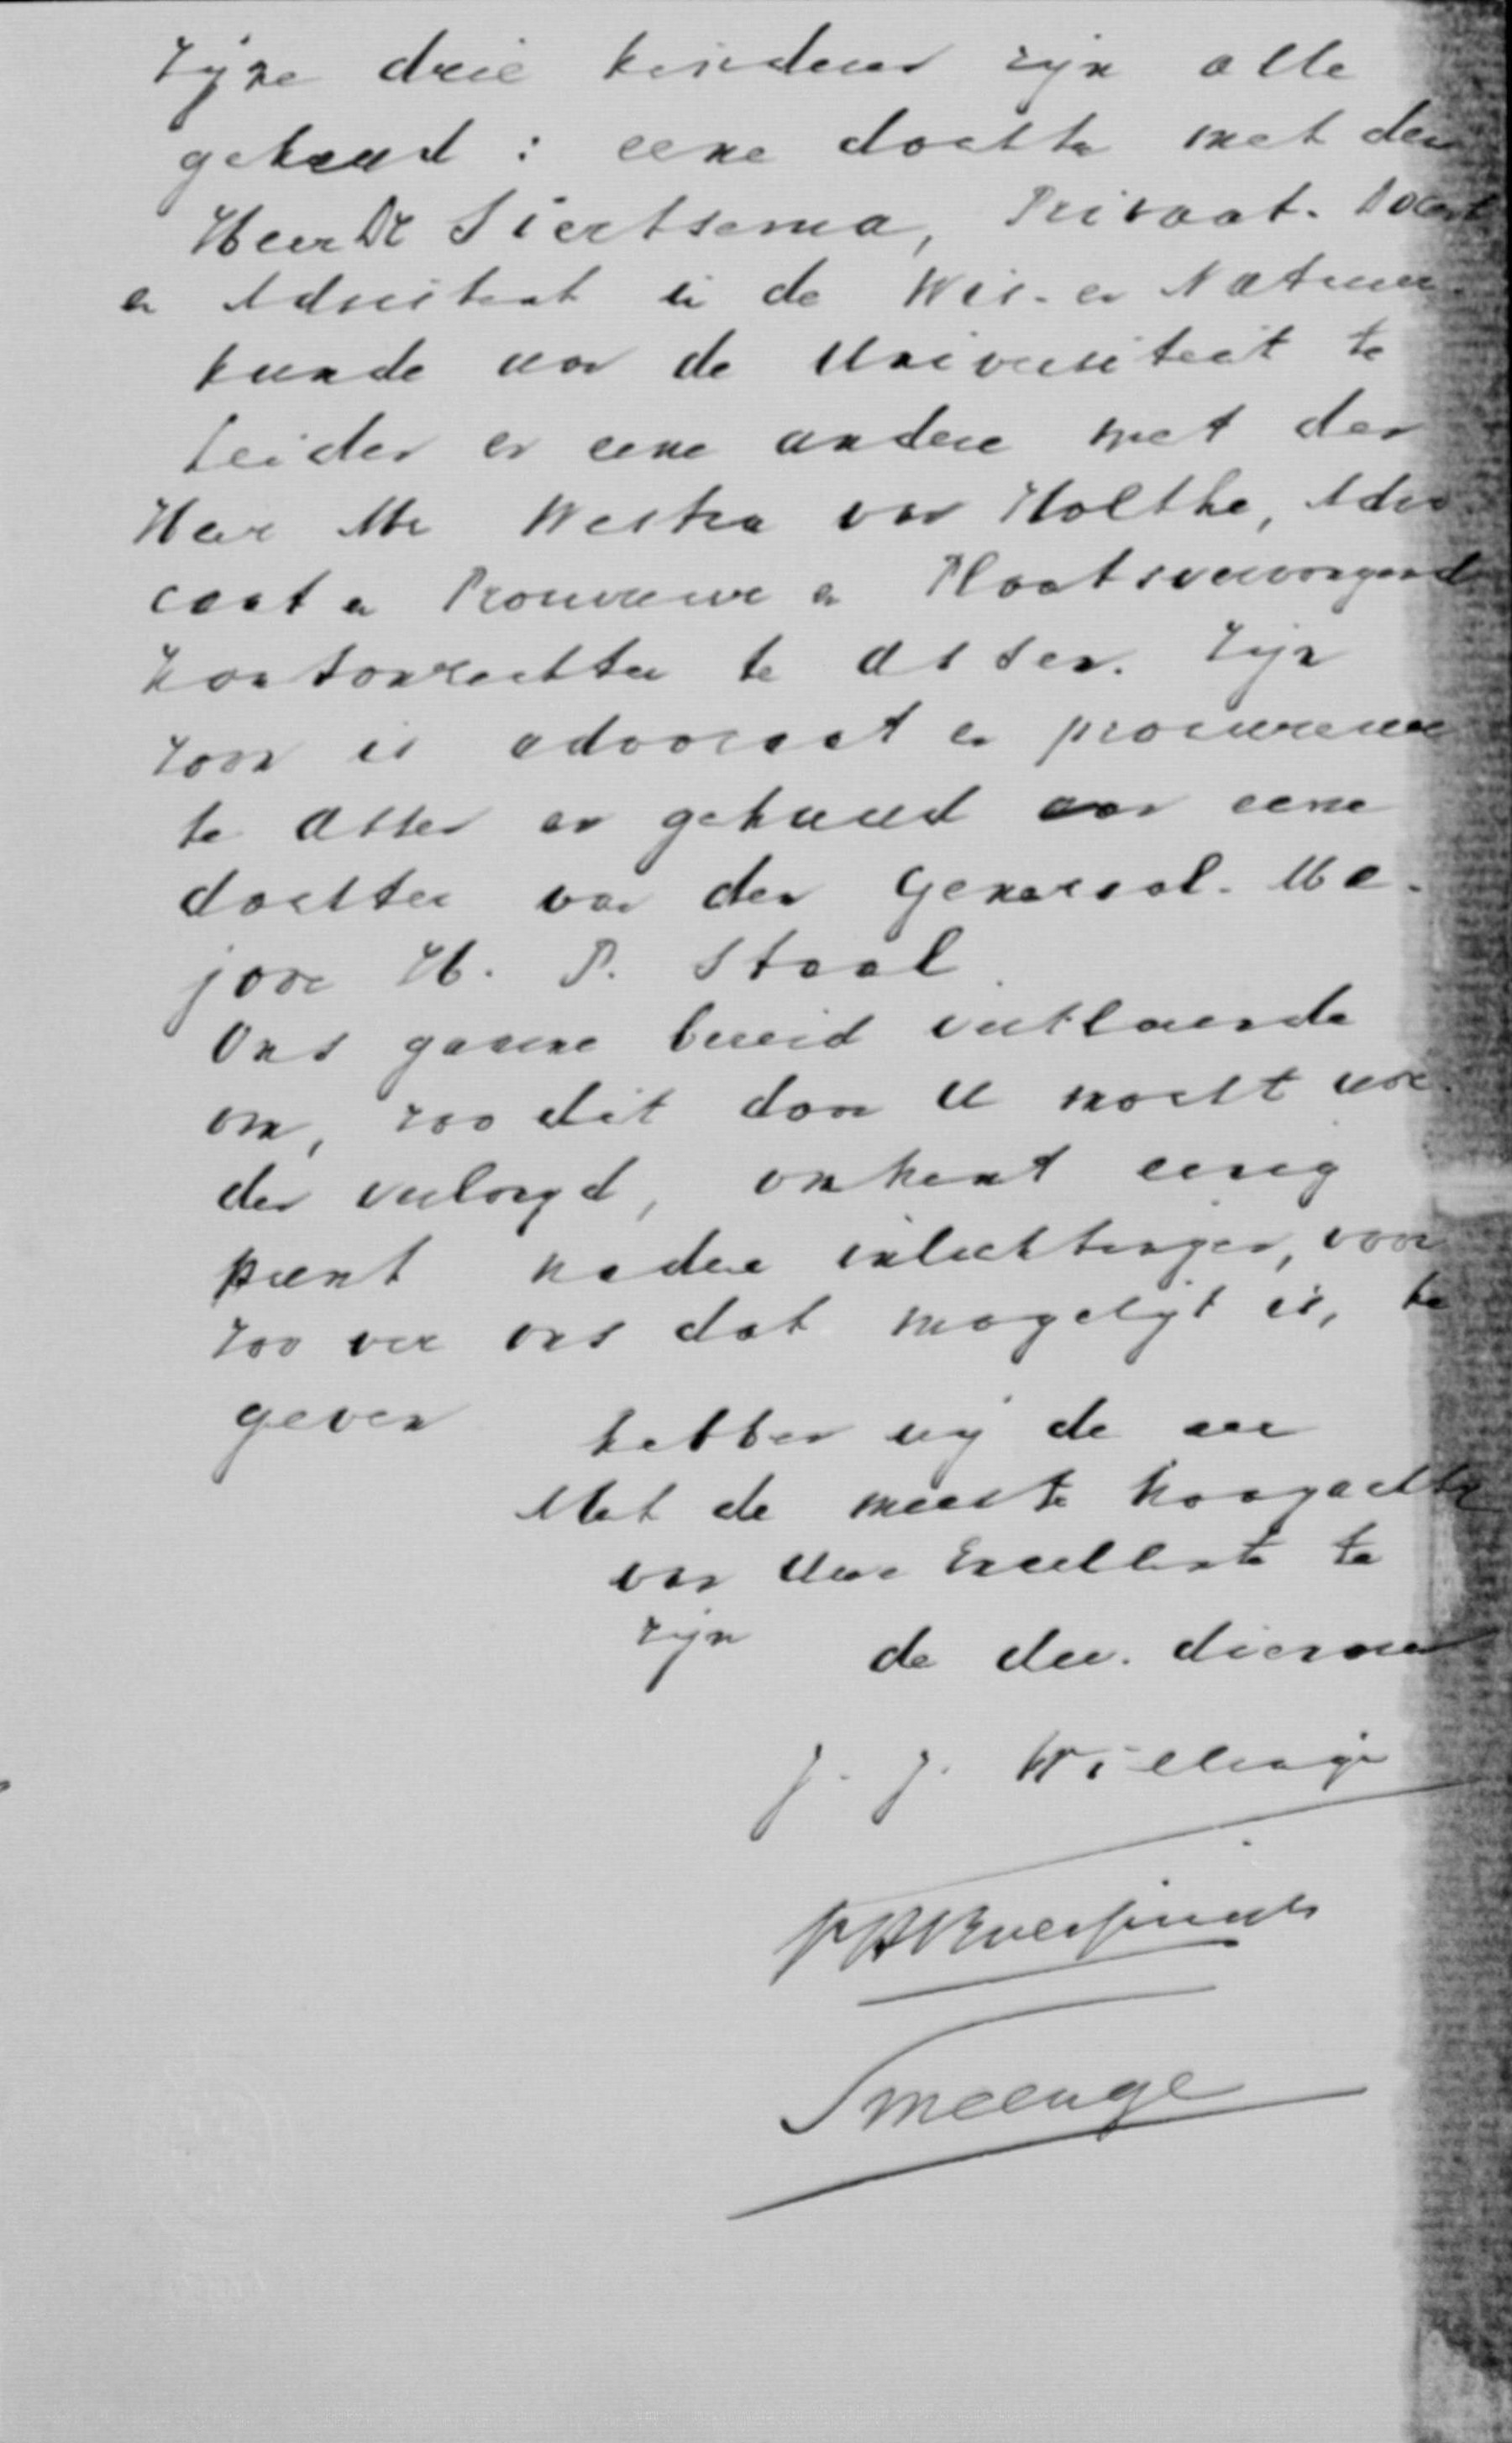 Zijne drie kinderen zijn alle
gehuwd: eene dochter met den
Heer Dr Siertsema, Privaat-Docent
en Adsistent in de Wis- en Natuur-
kunde aan de Universiteit te
Leiden en eene andere met den
Heer Mr Westra van Holthe, Advo-
caat en Procureur en Plaatsvervangend
Kantonrechter te Assen. Zijn
zoon is advocaat en procureur
te Assen en gehuwd aan eene
dochter van den Generaal-Ma-
joor H. P. Staal.
Ons gaarne bereid verklarende
om, zoo dit door U mocht wor-
den verlangd, omtrent eenig
punt nadere inlichtingen, voor
zoo ver ons dat mogelijk is, te
geven hebben wij de eer
Met de meeste hoogachting
van Uwe Excellentie te
zijn de dw. dienaren
J. J. Willinge
Smeenge